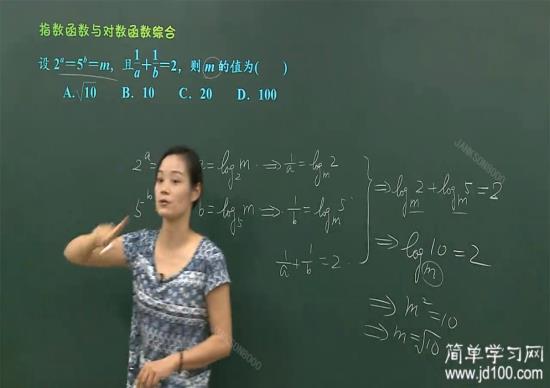 指数函数与对数函数综合
设 2ᵃ=5ᵇ=m，且 1/a+1/b=2，则 m 的值为(　)
A.√10　B. 10　C. 20　D. 100
2ᵃ= a=log₂m ⇒ 1/a=logₘ2
5ᵇ b=log₅m ⇒ 1/b=logₘ5
1/a+1/b=2
⇒ logₘ2+logₘ5=2
⇒ logₘ10=2
⇒ m²=10
⇒ m=√10
JANKSON8000
JANKSON8000
简单学习网
www.jd100.com